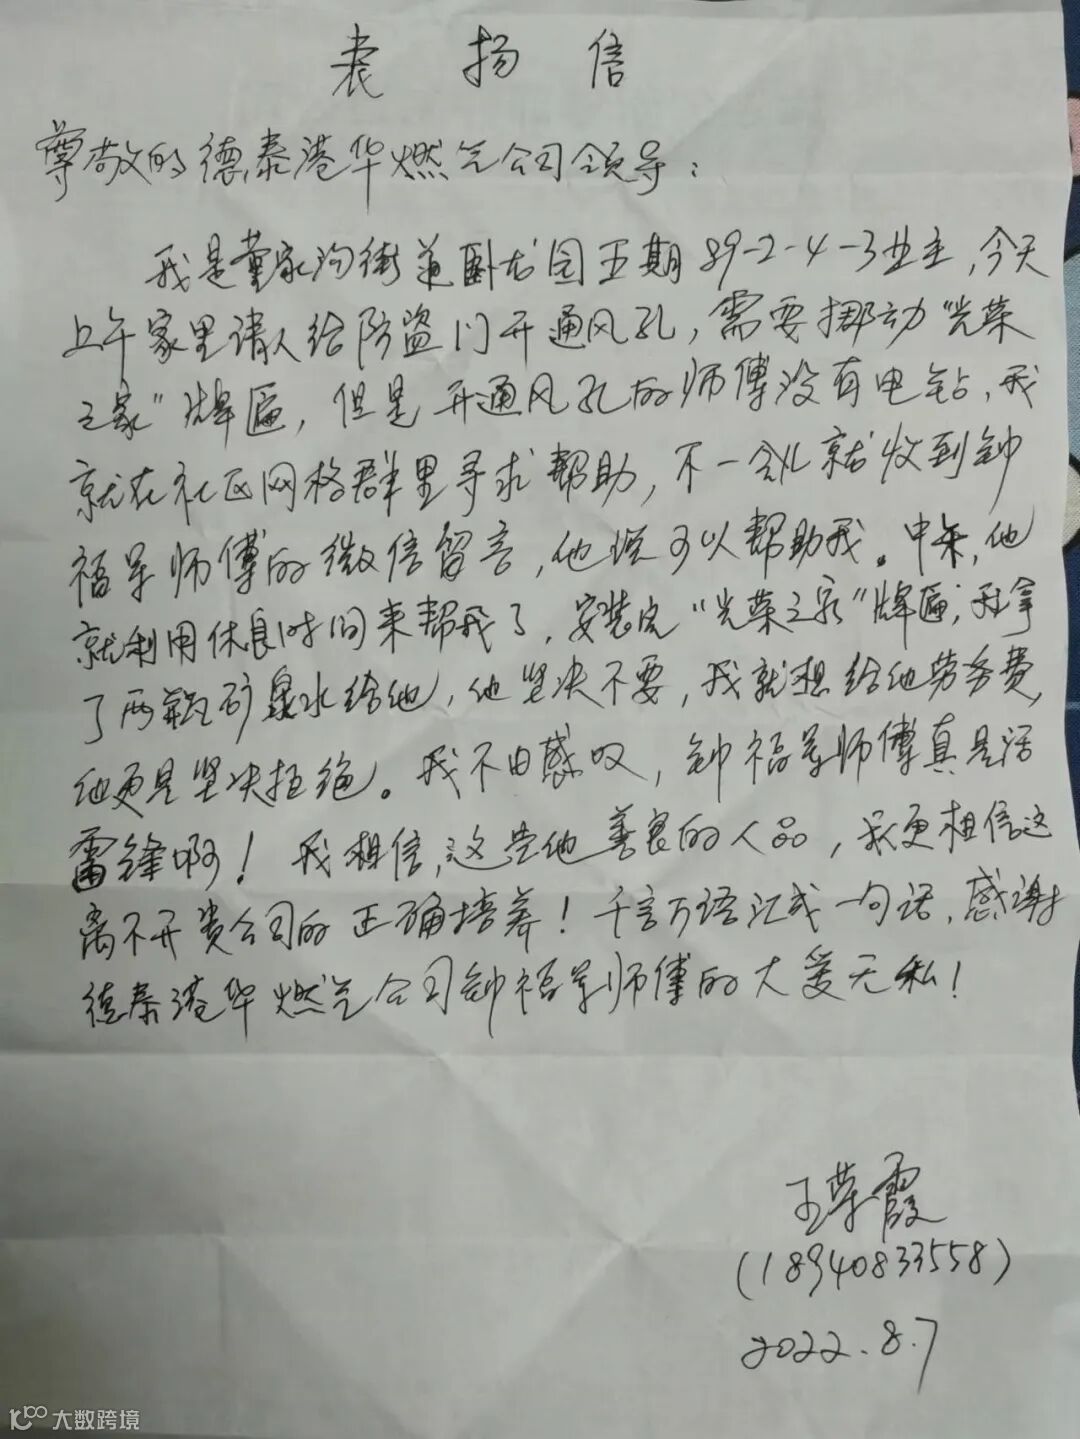 表扬信
尊敬的德泰港华燃气公司领导:
我是董家沟街道卧龙园五期89-2-4-3业主,今天
上午家里请人给防盗门开通风孔,需要挪动“光荣
之家”牌匾,但是开通风孔的师傅没有电钻,我
就在社区网格群里寻求帮助,不一会儿就收到钟
福军师傅的微信留言,他说可以帮助我。中午,他
就利用休息时间来帮我了,安装完“光荣之家”牌匾,我拿
了两瓶矿泉水给他,他坚决不要,我就想给他劳务费,
他更是坚决拒绝。我不由感叹,钟福军师傅真是活
雷锋啊!我相信,这些他善良的人品,我更相信这
离不开贵公司的正确培养!千言万语汇成一句话,感谢
德泰港华燃气公司钟福军师傅的大爱无私!
王荣霞
(18940833558)
2022.8.7
大数跨境